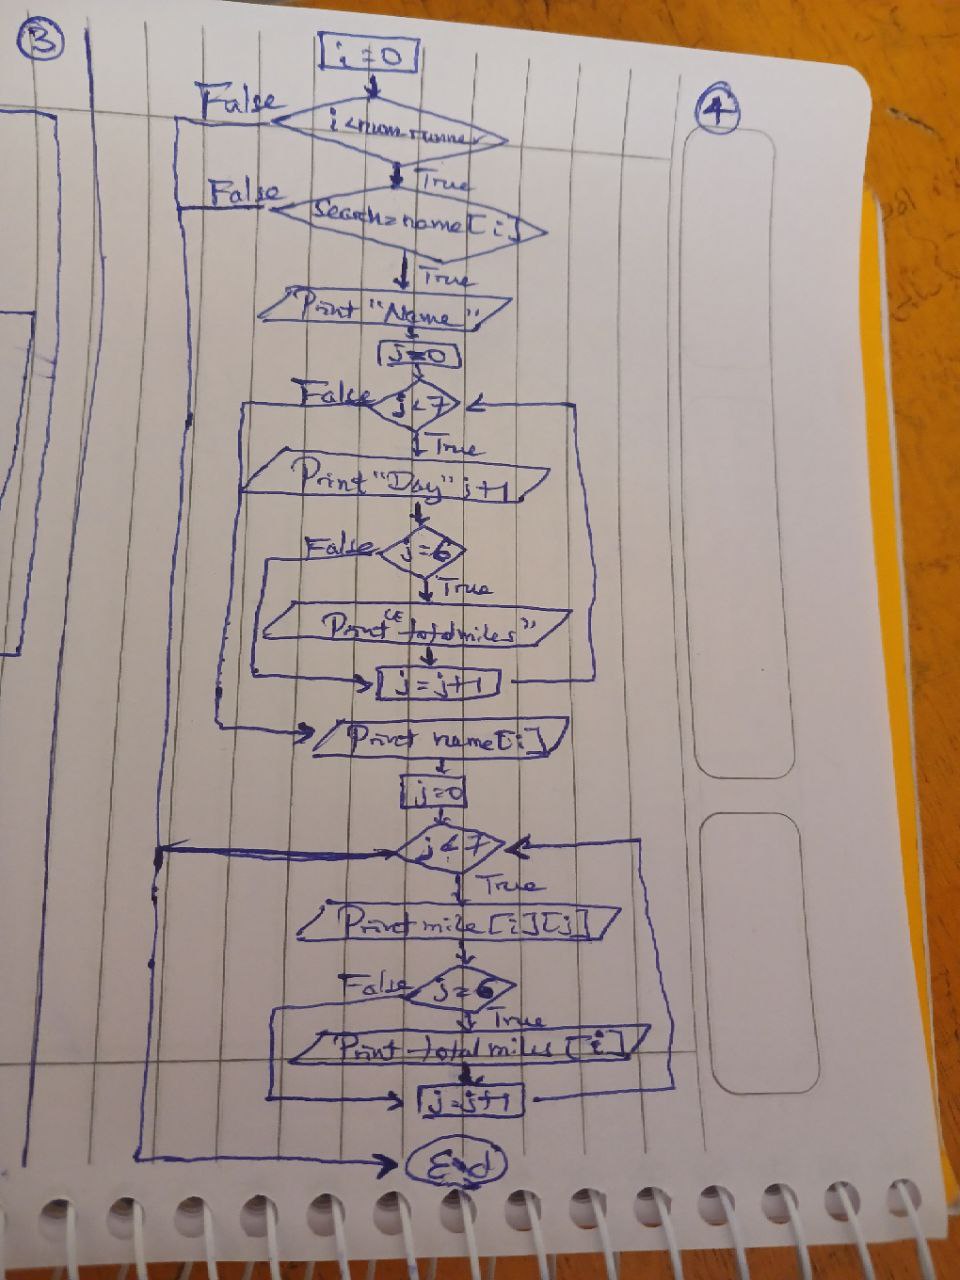 3
i=0
4
False
i<num-runner
True
False
Search=name[i]
True
Print "Name"
j=0
False
j<7
True
Print "Day" j+1
False
j=6
True
Print "total miles"
j=j+1
Print name[i]
j=0
j<7
True
Print mile[i][j]
False
j=6
True
Print total miles [i]
j=j+1
End